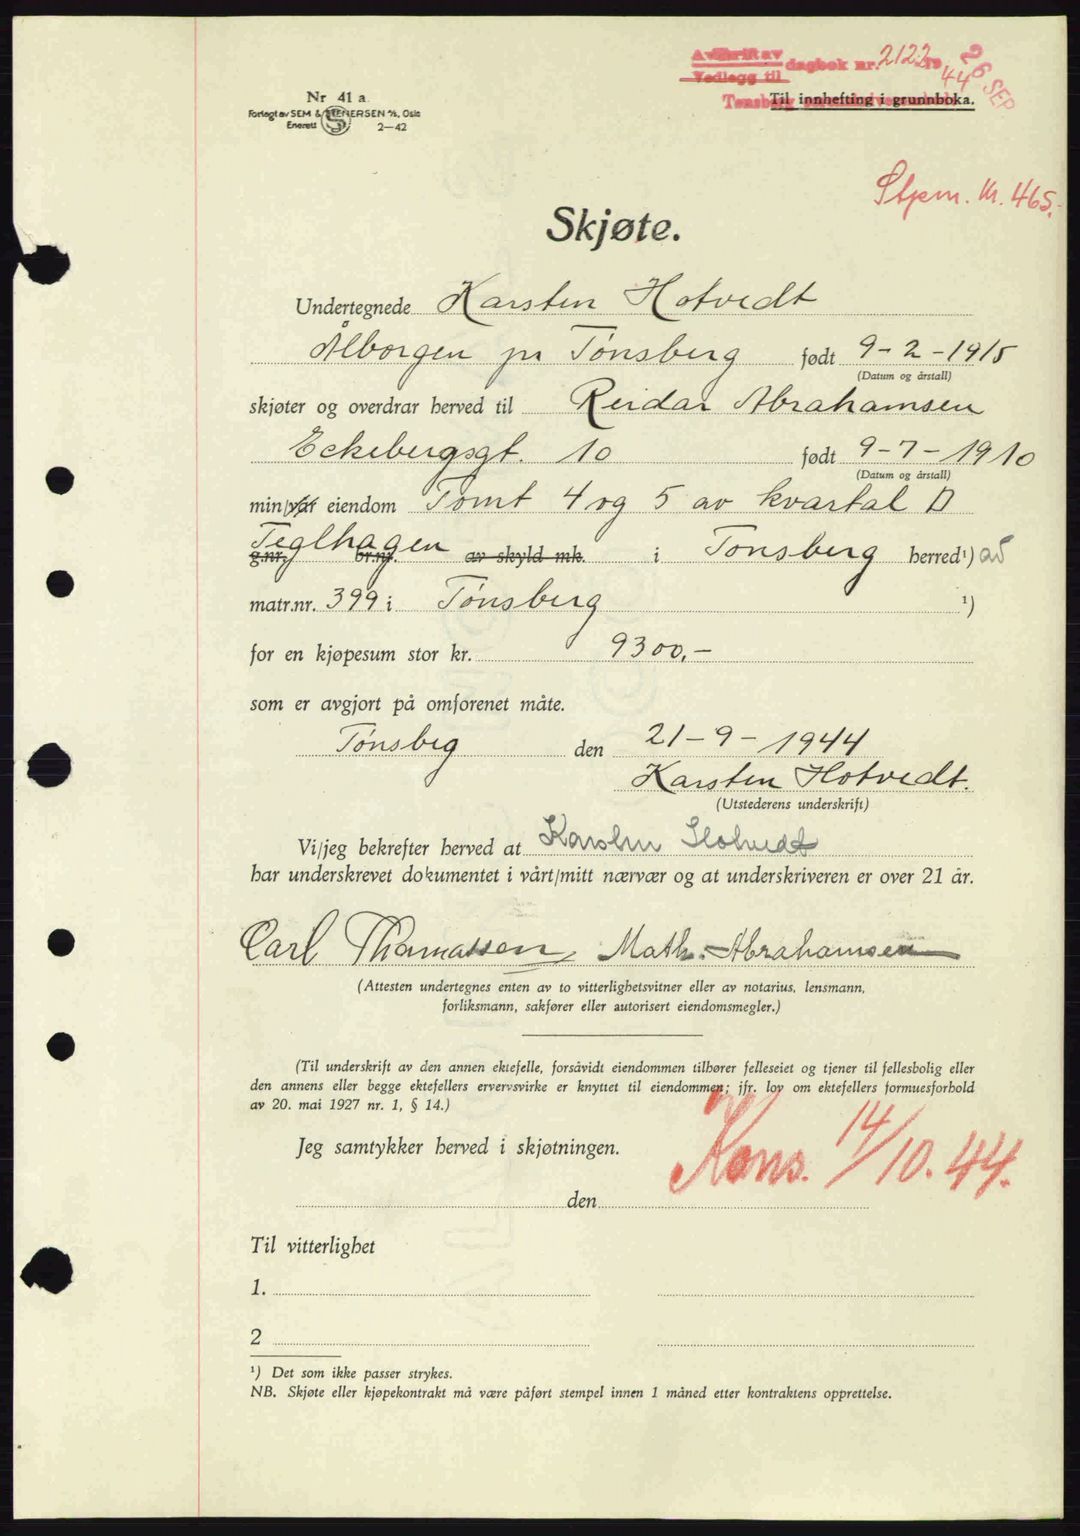 Avskrift av
Vedlegg til dagbok nr. 2122 19 44 26 SEP
Til innhefting i grunnboka.
Nr 41 a
Forlagt av SEM & STENERSEN A/S, Oslo
Enerett 2-42
Stpm. kr. 465.-
Skjøte.
Undertegnede Karsten Hotvedt
Ålborgen pr Tønsberg født 9-2-1915
(Datum og årstall)
skjøter og overdrar herved til Reidar Abrahamsen
Eckebergsgt. 10 født 9-7-1910
(Datum og årstall)
min/vår eiendom Tomt 4 og 5 av kvartal D
Teglhagen
g.nr. br.nr. av skyld mk. i Tønsberg herred¹) av
matr.nr. 399 i Tønsberg ¹)
for en kjøpesum stor kr. 9300,-
som er avgjort på omforenet måte.
Tønsbeg den 21-9-1944
Karsten Hotvedt.
(Utstederens underskrift)
Vi/jeg bekrefter herved at Karsten Hotvedt
har underskrevet dokumentet i vårt/mitt nærvær og at underskriveren er over 21 år.
Carl Thomassen, Math. Abrahamsen
(Attesten undertegnes enten av to vitterlighetsvitner eller av notarius, lensmann,
forliksmann, sakfører eller autorisert eiendomsmegler.)
(Til underskrift av den annen ektefelle, forsåvidt eiendommen tilhører felleseiet og tjener til fellesbolig eller
den annens eller begge ektefellers ervervsvirke er knyttet til eiendommen; jfr. lov om ektefellers formuesforhold
av 20. mai 1927 nr. 1, § 14.)
Kons. 14/10. 44.
Jeg samtykker herved i skjøtningen.
den
Til vitterlighet
1.
2
¹) Det som ikke passer strykes.
NB. Skjøte eller kjøpekontrakt må være påført stempel innen 1 måned etter kontraktens opprettelse.